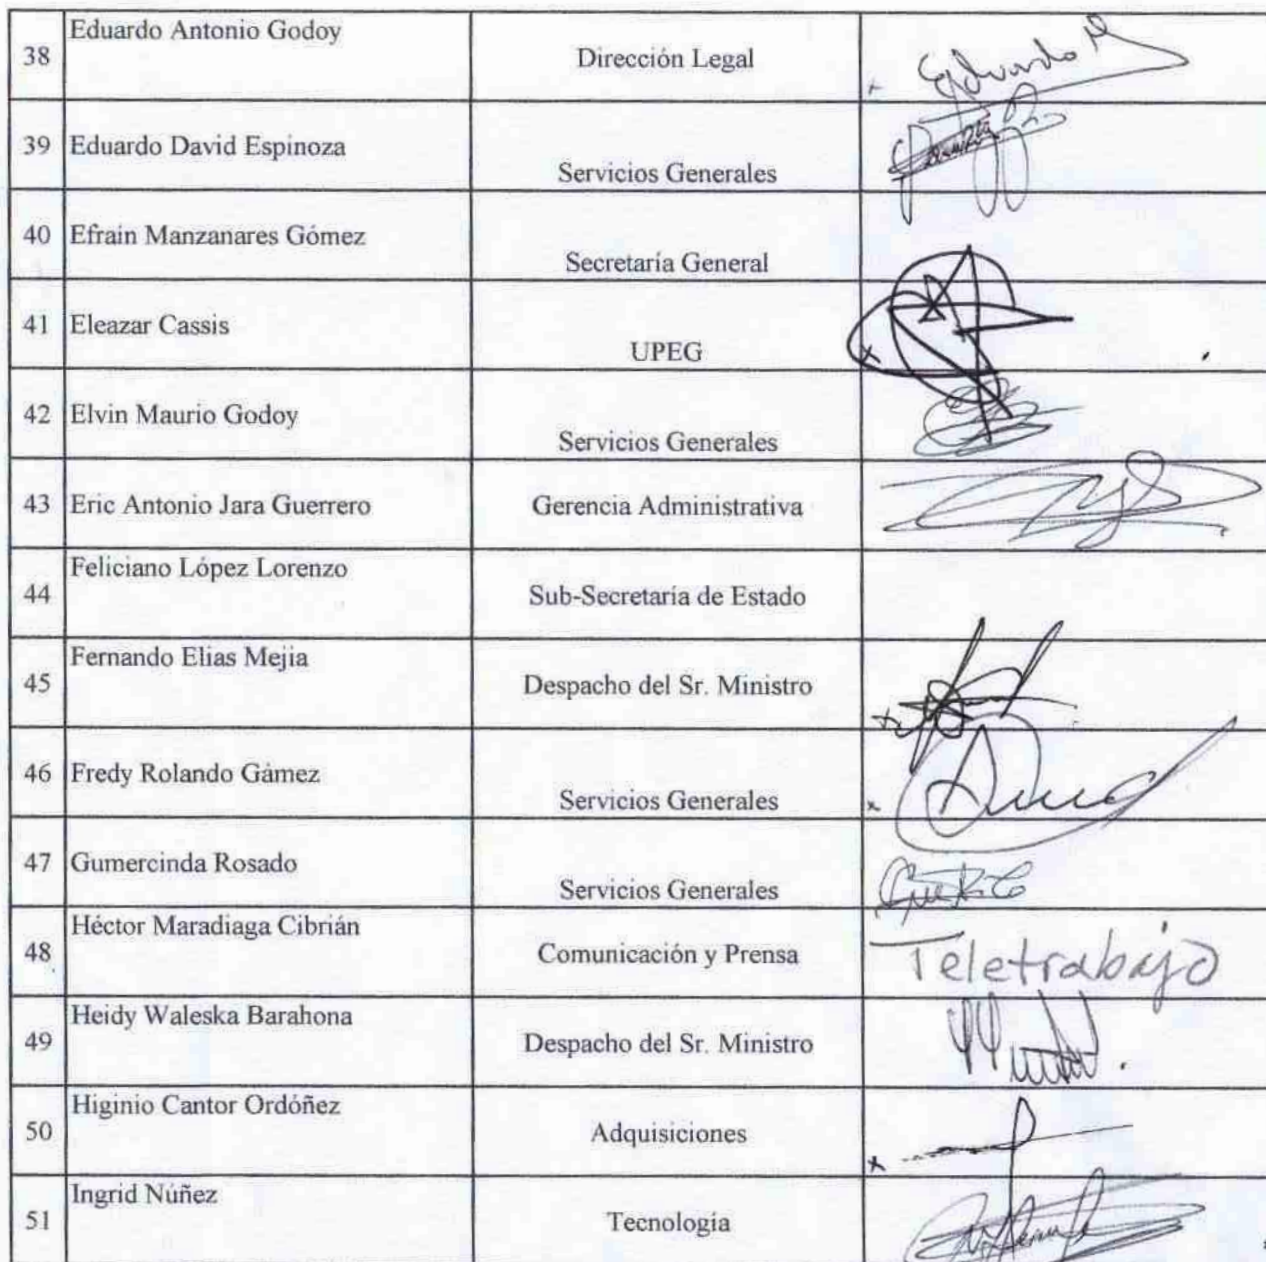 38 Eduardo Antonio Godoy Dirección Legal Eduardo
39 Eduardo David Espinoza Servicios Generales
40 Efraín Manzanares Gómez Secretaría General
41 Eleazar Cassis UPEG
42 Elvin Maurio Godoy Servicios Generales
43 Eric Antonio Jara Guerrero Gerencia Administrativa
44 Feliciano López Lorenzo Sub-Secretaría de Estado
45 Fernando Elias Mejia Despacho del Sr. Ministro
46 Fredy Rolando Gámez Servicios Generales
47 Gumercinda Rosado Servicios Generales
48 Héctor Maradiaga Cibrián Comunicación y Prensa Teletrabajo
49 Heidy Waleska Barahona Despacho del Sr. Ministro
50 Higinio Cantor Ordóñez Adquisiciones
51 Ingrid Núñez Tecnología